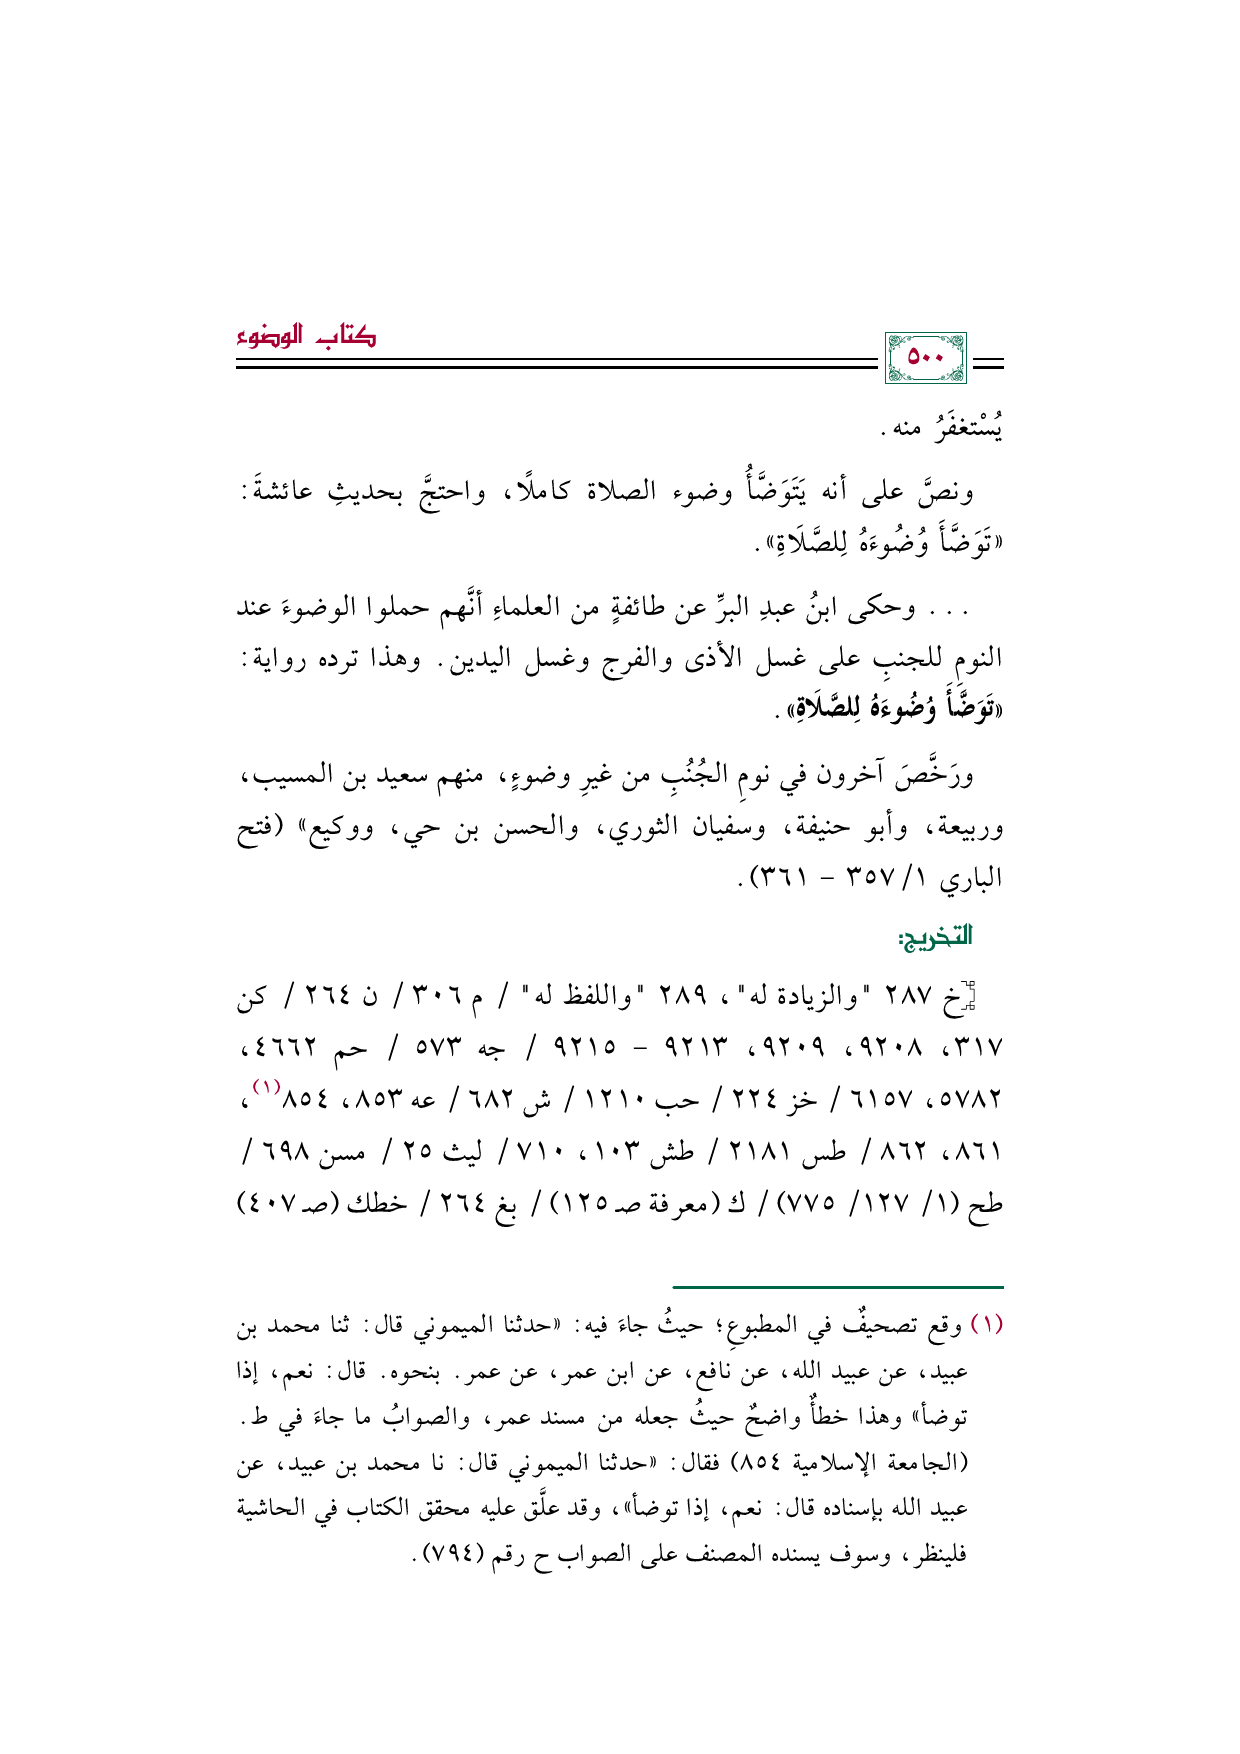 كتاب الوضوء
٥٠٠
يُسْتغفَرُ منه.
ونصَّ على أنه يَتَوَضَّأُ وضوء الصلاة كاملًا، واحتجَّ بحديثِ عائشةَ:
«تَوَضَّأَ وُضُوءَهُ لِلصَّلَاةِ».
... وحكى ابنُ عبدِ البرِّ عن طائفةٍ من العلماءِ أنَّهم حملوا الوضوءَ عند
النومِ للجنبِ على غسل الأذى والفرج وغسل اليدين. وهذا ترده رواية:
«تَوَضَّأَ وُضُوءَهُ لِلصَّلَاةِ».
ورَخَّصَ آخرون في نومِ الجُنُبِ من غيرِ وضوءٍ، منهم سعيد بن المسيب،
وربيعة، وأبو حنيفة، وسفيان الثوري، والحسن بن حي، ووكيع» (فتح
الباري ١/ ٣٥٧ – ٣٦١).
التخريج:
[خ ٢٨٧ "والزيادة له"، ٢٨٩ "واللفظ له" / م ٣٠٦ / ن ٢٦٤ / كن
٣١٧، ٩٢٠٨، ٩٢٠٩، ٩٢١٣ – ٩٢١٥ / جه ٥٧٣ / حم ٤٦٦٢،
٥٧٨٢، ٦١٥٧ / خز ٢٢٤ / حب ١٢١٠ / ش ٦٨٢ / عه ٨٥٣، ٨٥٤(١)،
٨٦١، ٨٦٢ / طس ٢١٨١ / طش ١٠٣، ٧١٠ / ليث ٢٥ / مسن ٦٩٨ /
طح (١/ ١٢٧/ ٧٧٥) / ك (معرفة صـ ١٢٥) / بغ ٢٦٤ / خطك (صـ ٤٠٧)
(١) وقع تصحيفٌ في المطبوعِ؛ حيثُ جاءَ فيه: «حدثنا الميموني قال: ثنا محمد بن
عبيد، عن عبيد الله، عن نافع، عن ابن عمر، عن عمر. بنحوه. قال: نعم، إذا
توضأ» وهذا خطأٌ واضحٌ حيثُ جعله من مسند عمر، والصوابُ ما جاءَ في ط.
(الجامعة الإسلامية ٨٥٤) فقال: «حدثنا الميموني قال: نا محمد بن عبيد، عن
عبيد الله بإسناده قال: نعم، إذا توضأ»، وقد علَّق عليه محقق الكتاب في الحاشية
فلينظر، وسوف يسنده المصنف على الصواب ح رقم (٧٩٤).